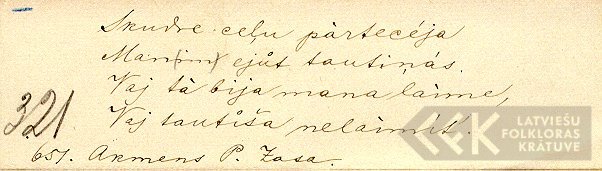 Skudre ceļu pàrtecéja
Man(im) ejůt tautiņás.
Vaj tà bija mana laime,
Vaj tautiša nelaimît.
321
651. Akmens P. Zosa.
LATVIEŠU
FOLKLORAS
KRĀTUVE